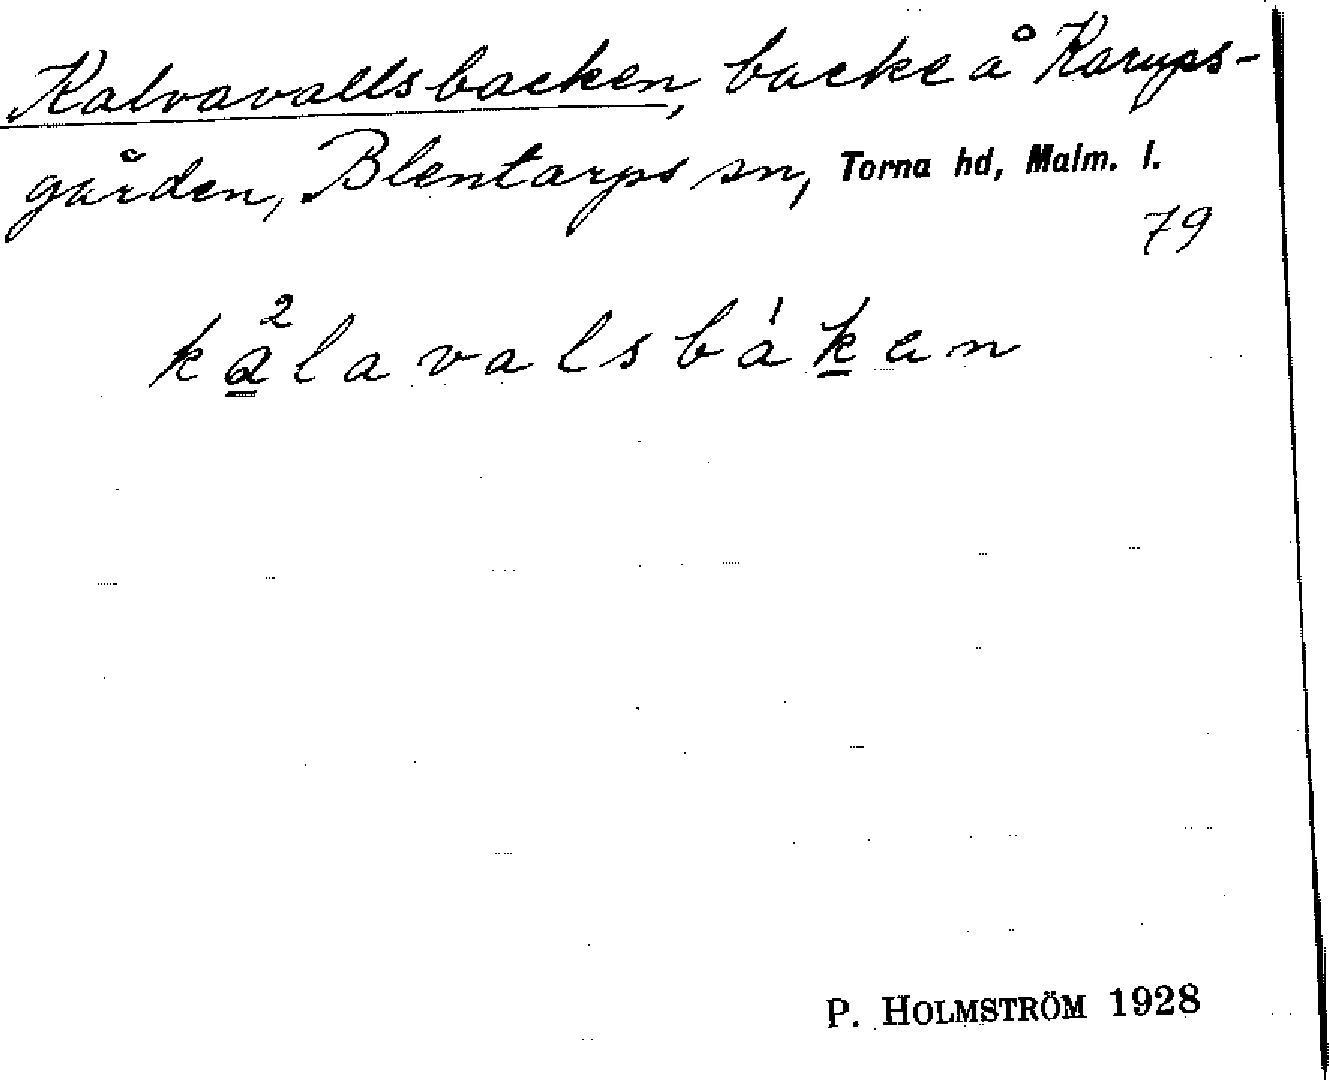 Kalvavallsbacken, backe å Karups-
gården, Blentarps sn, Torna hd, Malm. l.
79
ka̲²lavalsbák̲an
P. HOLMSTRÖM 1928